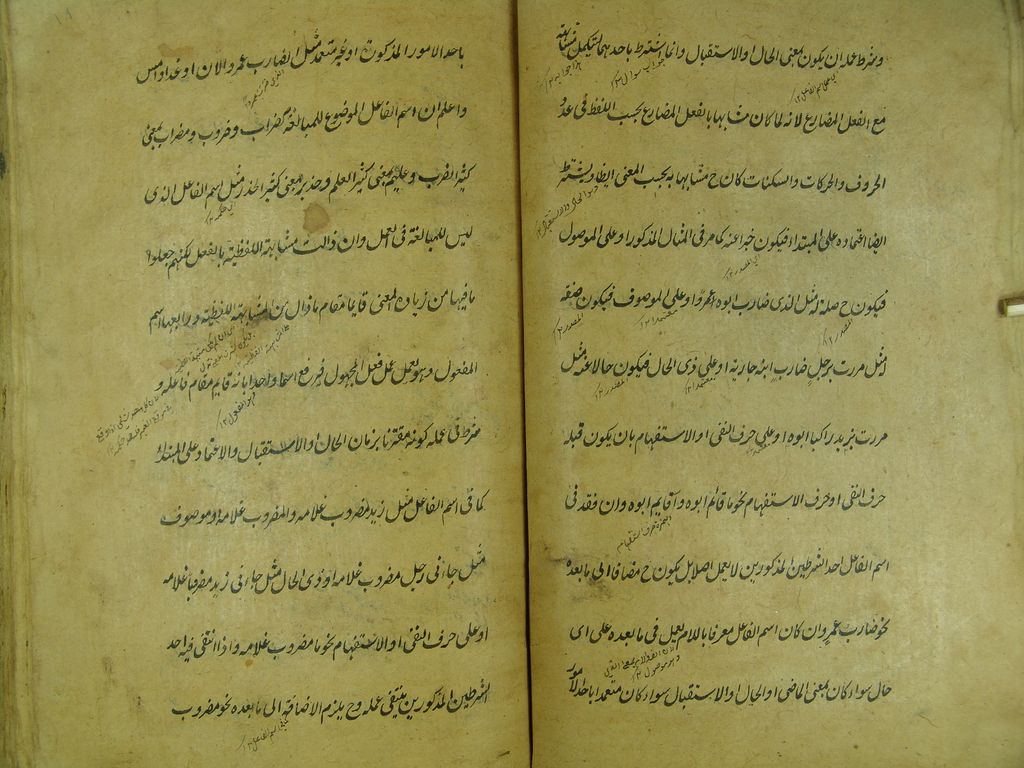 وشرط عمله ان يكون بمعنى الحال او الاستقبال وانما اشترط باحدهما ليكمل مشابهته
مع الفعل المضارع لانه لما كان مشابها بالفعل المضارع بحسب اللفظ فى عدد
الحروف والحركات والسكنات كان ح مشابها به بحسب المعنى ايضا ويشترط
ايضا اعتماده على المبتداء فيكون خبرا عنه كما مر فى المثال المذكور او على الموصول
فيكون ح صلة له مثل الذى ضارب ابوه عمروا او على الموصوف فيكون صفة
مثل مررت برجل ضارب ابنه جارية او على ذى الحال فيكون حالا عنه مثل
مررت بزيد راكبا ابوه او على حرف النفى او الاستفهام بان يكون قبله
حرف النفى او حرف الاستفهام نحو ما قائم ابوه وا قايم ابوه وان فقد فى
اسم الفاعل احد الشرطين المذكورين لا يعمل اصلا بل يكون ح مضافا الى ما بعده
نحو ضارب عمرو وان كان اسم الفاعل معرفا باللام يعمل فى ما بعده على اى
حال سواء كان بمعنى الماضى او الحال او الاستقبال سواء كان متعمدا باحد الامور
باحد الامور المذكورة او غير متعمد مثل الضارب عمروا الان او غدا او امس
واعلم ان اسم الفاعل الموضوع للمبالغة كضراب وضروب ومضراب بمعنى
كثير الضرب وعليم بمعنى كثير العلم وحذر بمعنى كثير الحذر مثل اسم الفاعل الذى
ليس للمبالغة فى العمل وان زالت مشابهته اللفظية بالفعل لكنهم جعلوا
ما فيها من زيادة المعنى قايما مقام ما زال من المشابهة اللفظية ورابعها اسم
المفعول وهو يعمل عمل فعل المجهول فيرفع اسما واحدا بانه قايم مقام فاعله و
شرط فى عمله كونه مقترنا بزمان الحال او الاستقبال والاعتماد على المبتداء
كما فى اسم الفاعل مثل زيد مضروب غلامه والمضروب غلامه او موصوف
مثل جاءنى رجل مضروب غلامه او ذى الحال مثل جاءنى زيد مضروبا غلامه
او على حرف النفى او الاستفهام نحو ما مضروب غلامه واذا انتفى فيه احد
الشرطين المذكورين ينتفى عمله وح يلزم الاضافة الى ما بعده نحو مضروب